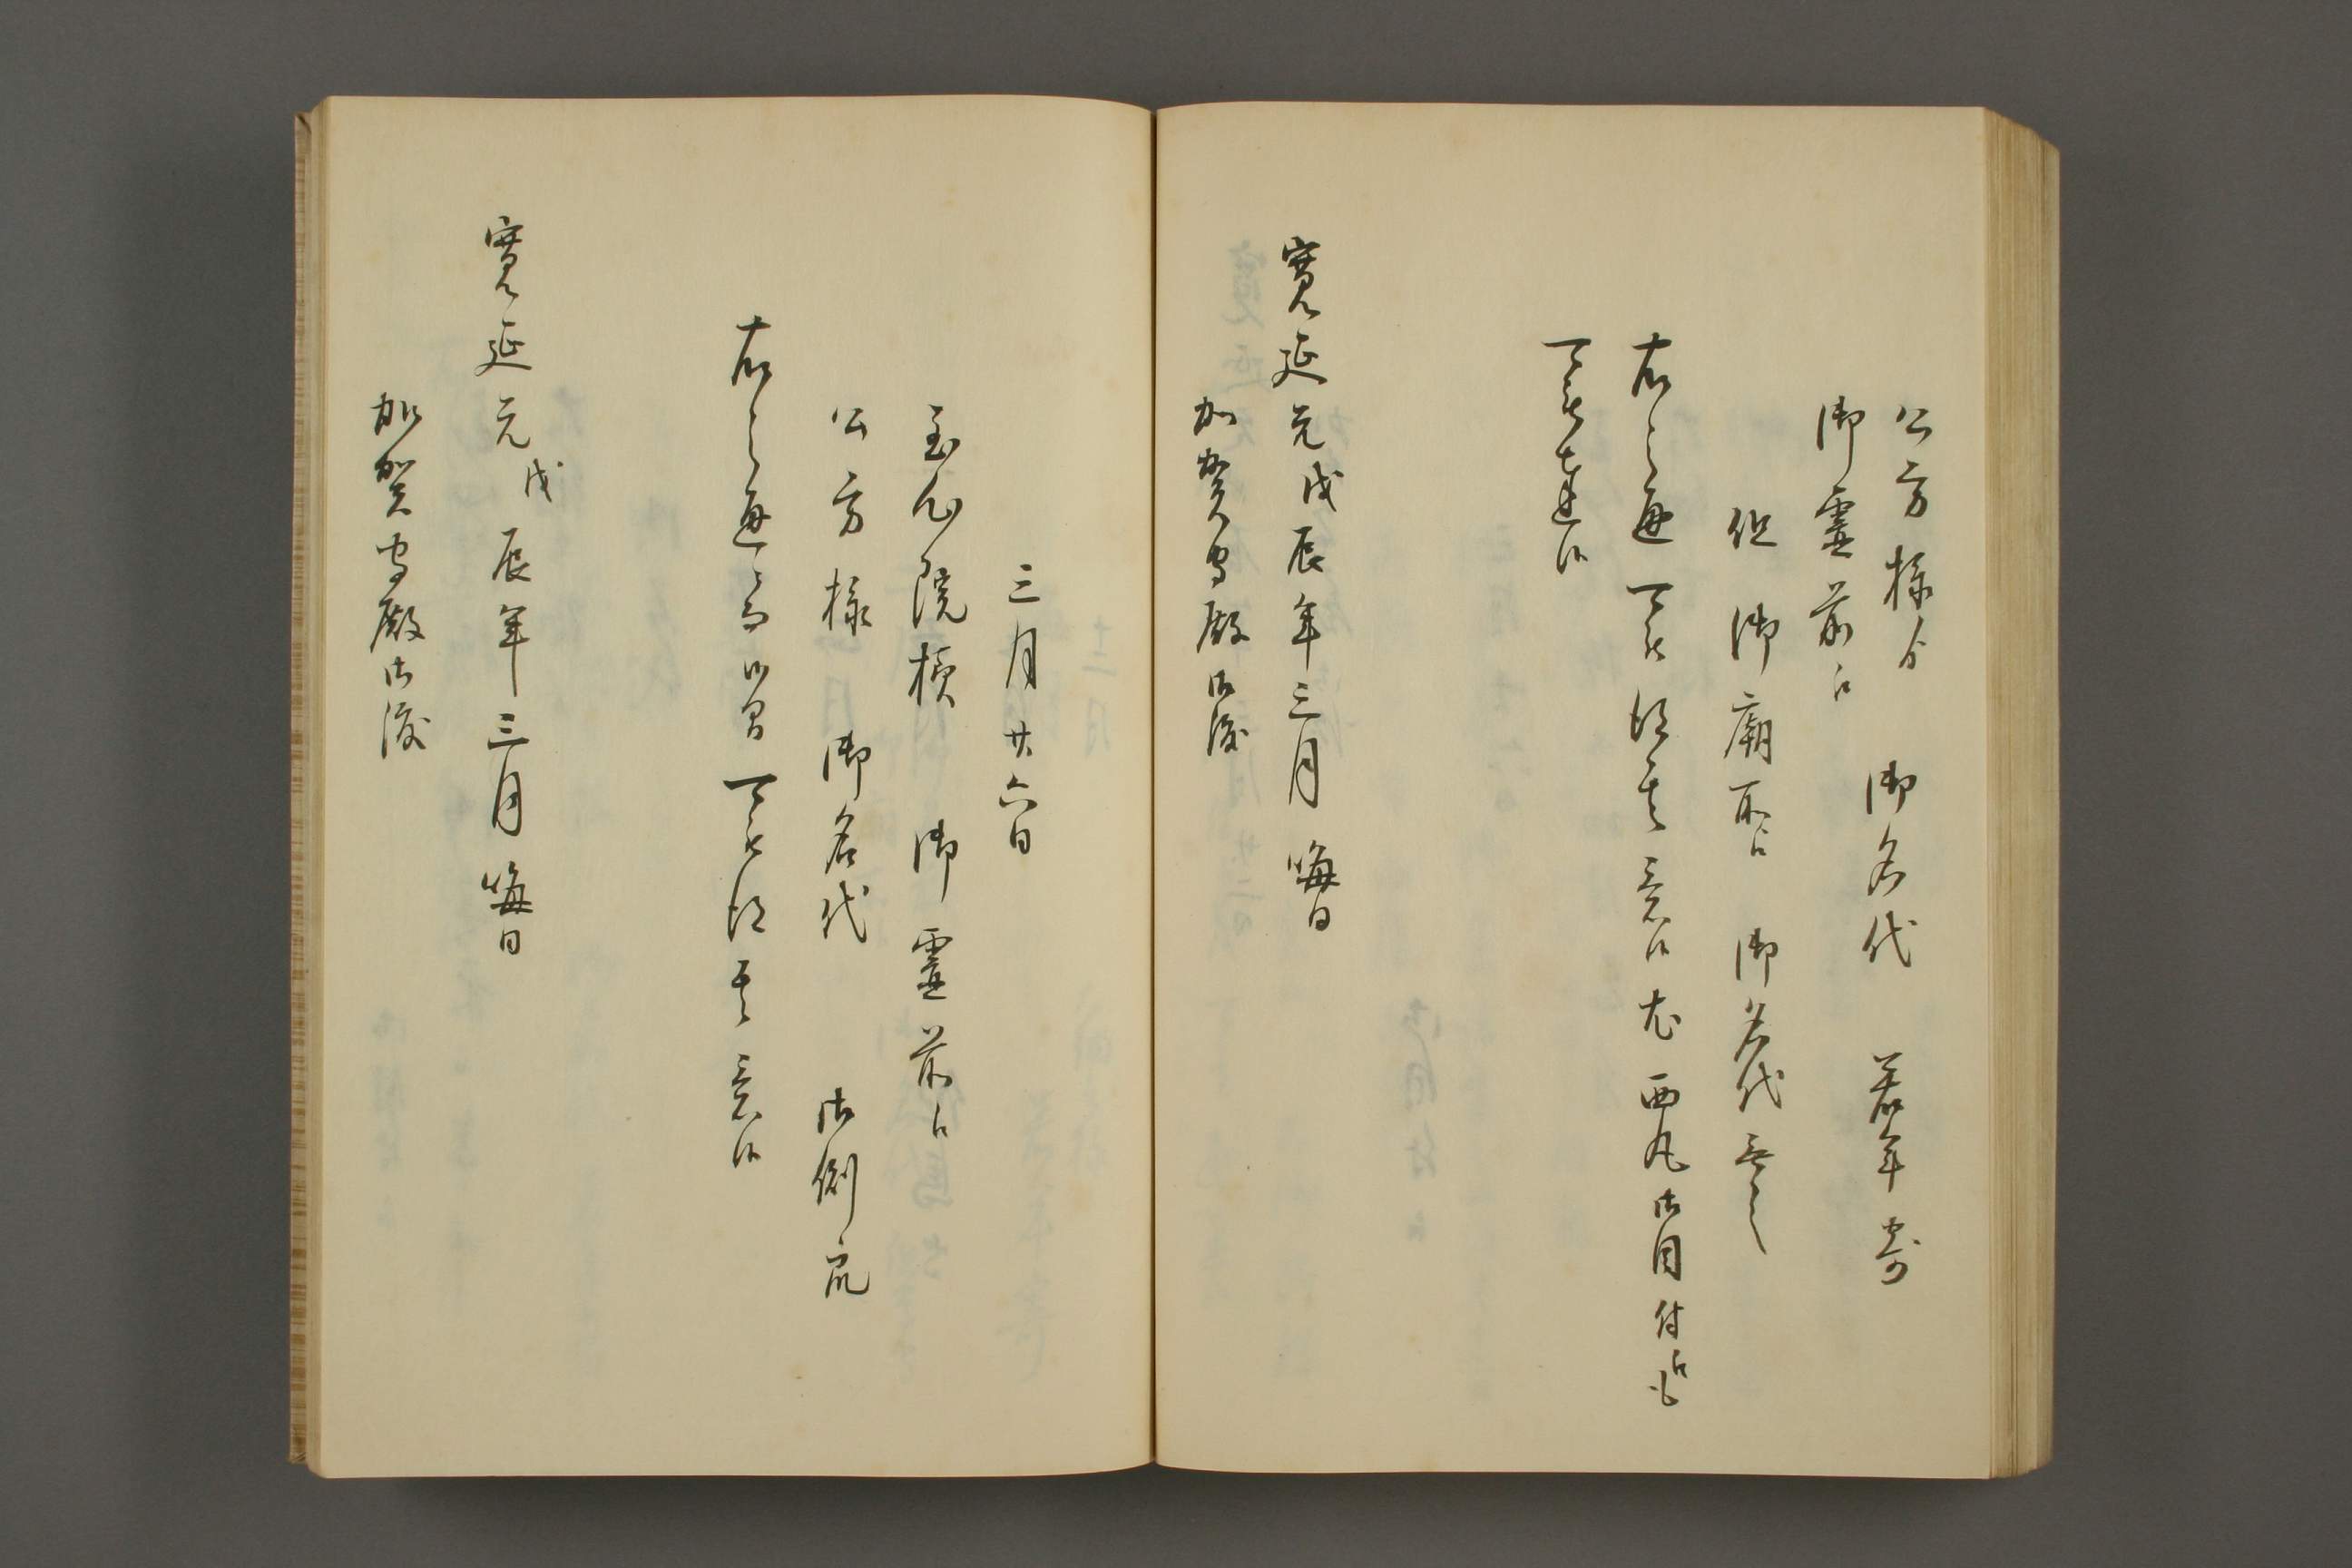 公方様ゟ 御名代 若年寄
御霊前江
但 御廟所江 御名代無之
右之通可被得其意候尤西丸御目付江も
可被達候
寛延元戊辰年三月晦日
加賀守殿御渡
三月廿六日
至心院様 御霊前江
公方様 御名代 御側衆
右之通候間可被得其意候
寛延元戊辰年三月晦日
加賀守殿御渡